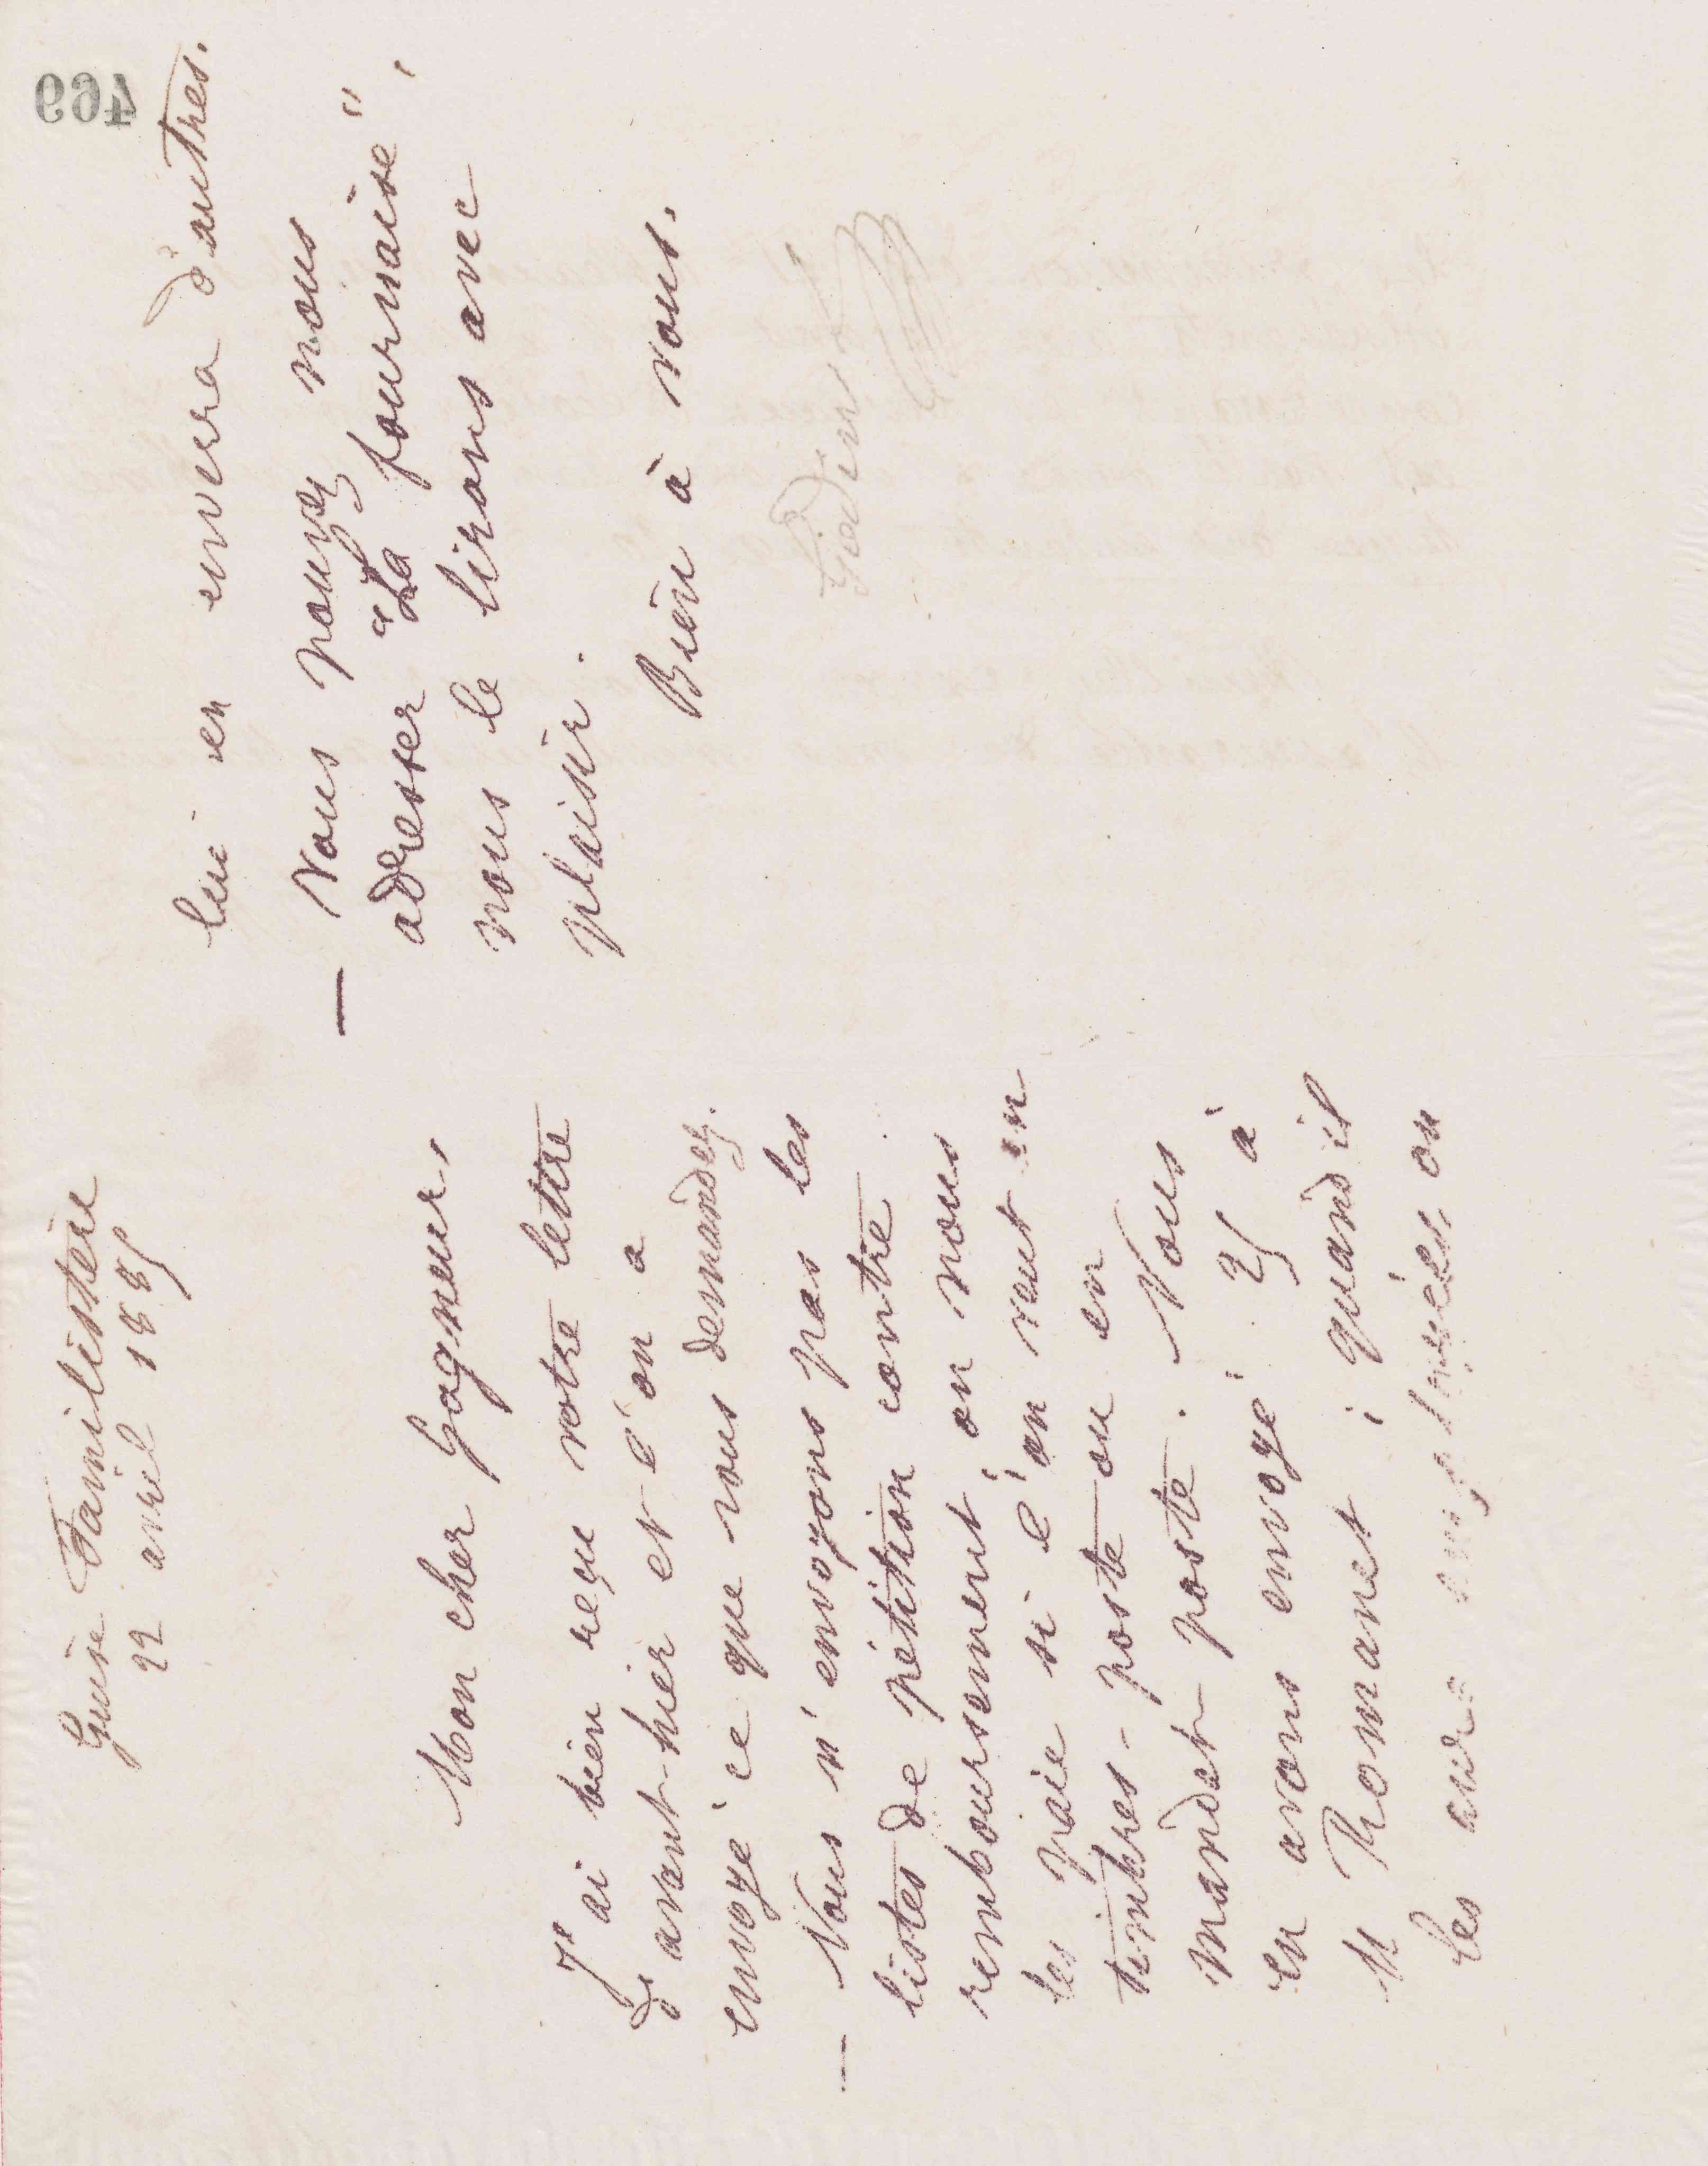 Guise Familistère
22 avril 1885
Mon cher Gagneur,
J'ai bien reçu votre lettre
d'avant-hier et l'on a
envoyé ce que vous demandez.
— Nous n'envoyons pas les
listes de pétition contre
remboursement, on nous
les paie si l'on veut en
timbres-poste ou en
mandat-poste. Nous
en avons envoyé 25 à
M Romanet ; quand il
les aura employées, on
lui en enverra d'autres.
— Vous pouvez nous
adresser "La fournaise",
nous le lirons avec
plaisir.
Bien à vous.
Godin
469